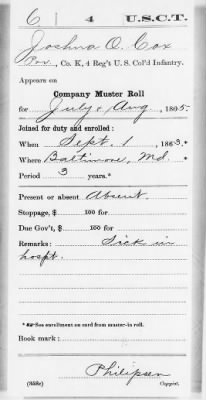 6 | 4 | U.S.C.T.
Joshua O. Cox
Pvt., Co. K, 4 Reg't U. S. Col'd Infantry.
Appears on
Company Muster Roll
for July & Aug, 1865.
Joined for duty and enrolled:
When Sept. 1, 1863.*
Where Baltimore, Md. *
Period 3 years.*
Present or absent Absent.
Stoppage, $ 100 for
Due Gov't, $ 100 for
Remarks: Sick in
hospt.
* See enrollment on card from muster-in roll.
Book mark:
Philipsen
(358c) Copyist.